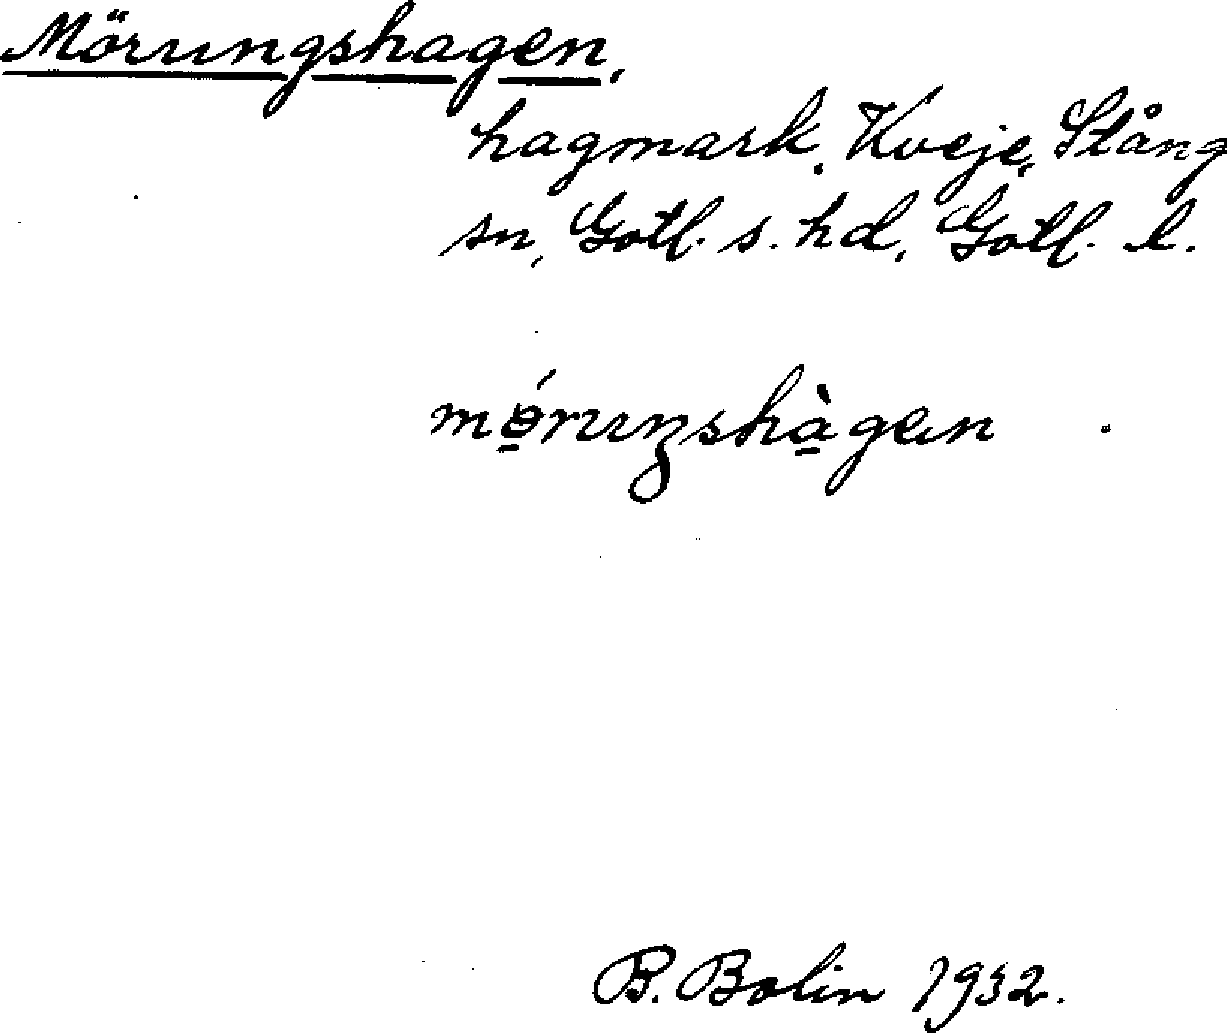 Mörungshagen,
hagmark, Kveje, Stång
sn, Gotl. s. hd, Gotl. l.
mǿ̱ruŋshà̱gen
B. Bolin 1932.